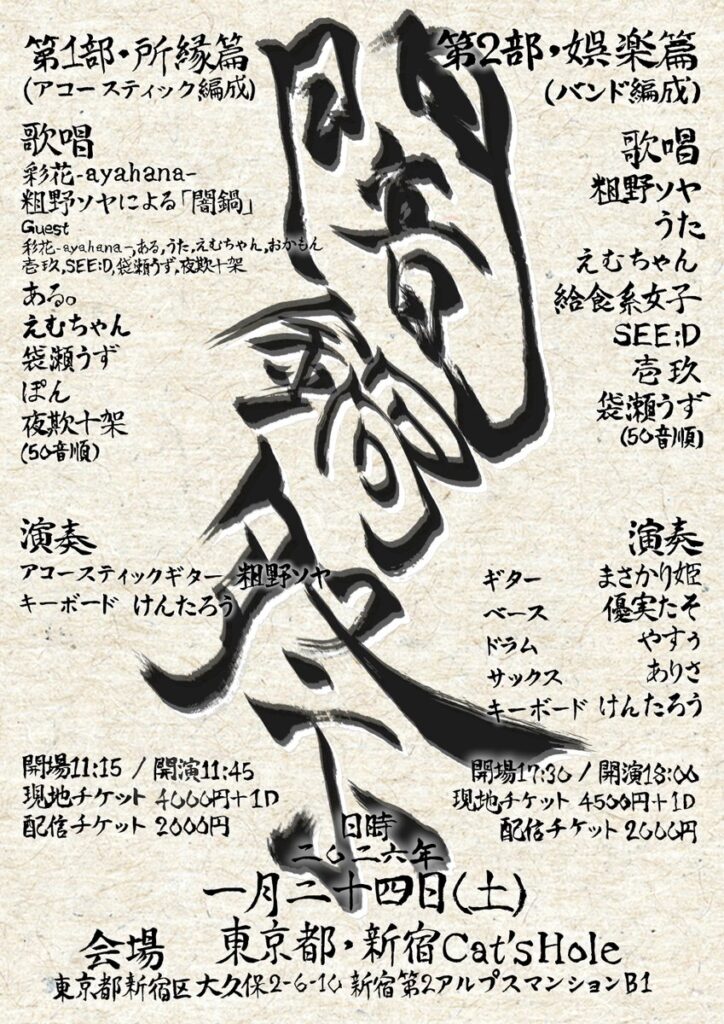 第1部・所縁篇
(アコースティック編成)
歌唱
彩花-ayahana-
粗野ソヤによる「闇鍋」
Guest
彩花-ayahana-,ある,うた,えむちゃん,おかもん
壱玖,SEE:D,袋瀬うず,夜欺十架
ある。
えむちゃん
袋瀬うず
ぽん
夜欺十架
(50音順)
演奏
アコースティックギター 粗野ソヤ
キーボード けんたろう
開場11:15 / 開演11:45
現地チケット 4000円+1D
配信チケット 2000円
闇鍋
第2部・娯楽篇
(バンド編成)
歌唱
粗野ソヤ
うた
えむちゃん
給食系女子
SEE:D
壱玖
袋瀬うず
(50音順)
演奏
ギター まさかり姫
ベース 優実たそ
ドラム やすぅ
サックス ありさ
キーボード けんたろう
開場17:30 / 開演18:00
現地チケット 4500円+1D
配信チケット 2000円
日時
二〇二六年
一月二十四日(土)
会場 東京都・新宿Cat'sHole
東京都新宿区大久保2-6-10 新宿第2アルプスマンションB1